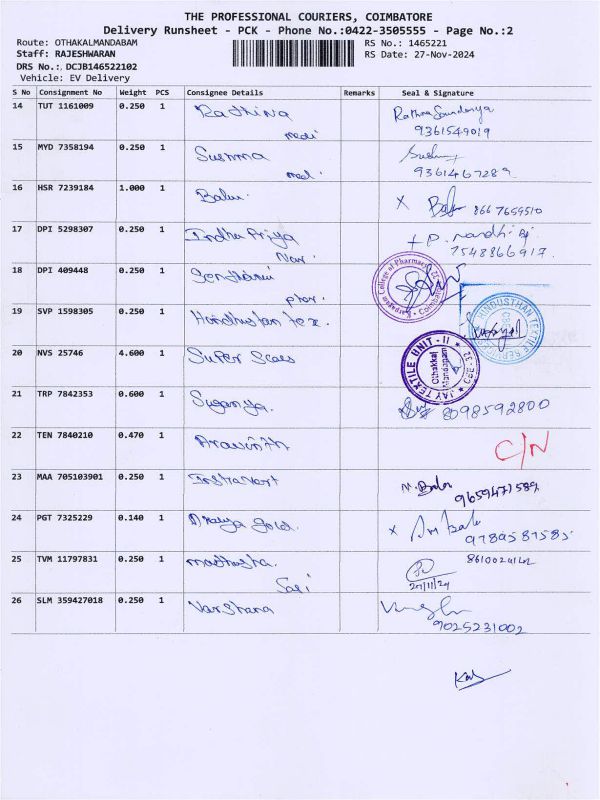 THE PROFESSIONAL COURIERS, COIMBATORE
Delivery Runsheet - PCK - Phone No.:0422-3505555 - Page No.:2
Route: OTHAKALMANDABAM
RS No.: 1465221
Staff: RAJESHWARAN
RS Date: 27-Nov-2024
DRS No.: DCJB146522102
Vehicle: EV Delivery
S No Consignment No Weight PCS Consignee Details Remarks Seal & Signature
14 TUT 1161009 0.250 1 Rathina
medi
9361549019
15 MYD 7358194 0.250 1 Sushma
med.
9361467289
16 HSR 7239184 1.000 1 Balu. X 866 7659510
17 DPI 5298307 0.250 1 Indhu Priya
Nar.
7548866917.
18 DPI 409448 0.250 1
College of Pharmacy
Coimbatore
19 SVP 1598305 0.250 1 Hindhustan tex.
HINDUSTHAN TEXTILE
20 NVS 25746 4.600 1 Super Scales
JAY TEXTILE UNIT - II
Othakkal
Mandapam
CBE-32
21 TRP 7842353 0.600 1 Suganya. 8098592800
22 TEN 7840210 0.470 1 Aravinth C/N
23 MAA 705103901 0.250 1 M. Bala
9659471589
24 PGT 7325229 0.140 1 gold. X
9789587585
25 TVM 11797831 0.250 1 8610024142
27/11/24
26 SLM 359427018 0.250 1 Varshana
9025231002